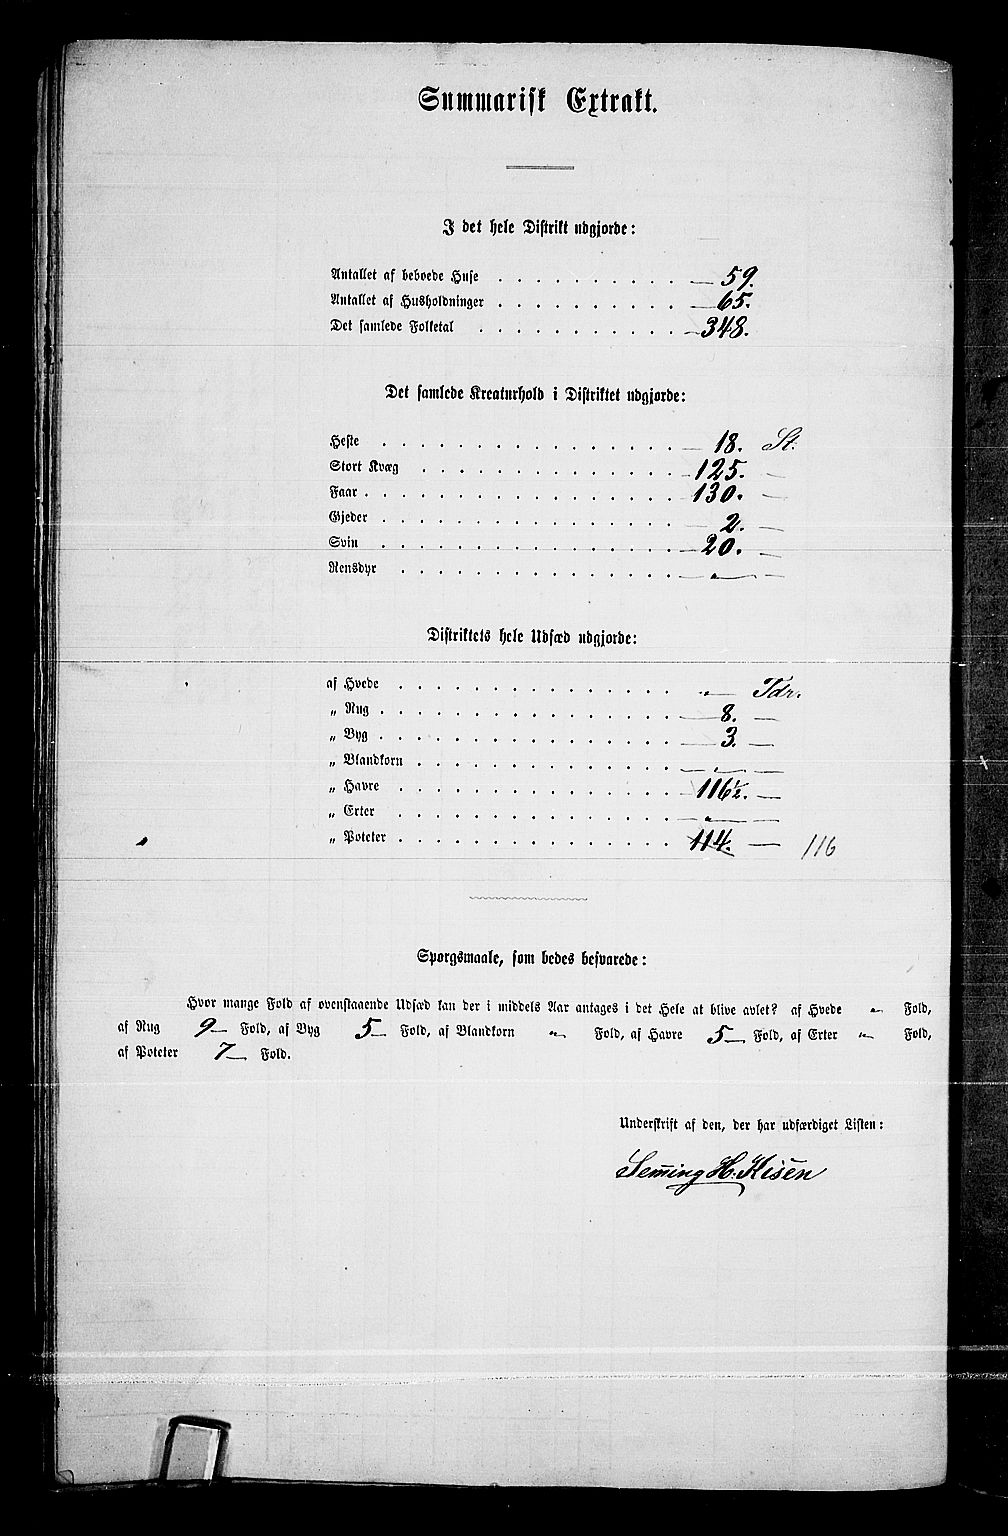 Summarisk Extrakt.
I det hele Distrikt udgjorde:
Antallet af beboede Huse . . . . . . . . . . 59.
Antallet af Husholdninger . . . . . . . . . . 65.
Det samlede Folketal . . . . . . . . . . . 348.
Det samlede Kreaturhold i Distriktet udgjorde:
Heste . . . . . . . . . . . . . . . 18. St.
Stort Kvæg . . . . . . . . . . . . . 125. —
Faar . . . . . . . . . . . . . . . 130. —
Gjeder . . . . . . . . . . . . . . . 2. —
Svin . . . . . . . . . . . . . . . 20. —
Rensdyr . . . . . . . . . . . . . . „ —
Distriktets hele Udsæd udgjorde:
af Hvede . . . . . . . . . . . . . . „ — Tdr.
„ Rug . . . . . . . . . . . . . . . 8. —
„ Byg . . . . . . . . . . . . . . . 3. —
„ Blandkorn . . . . . . . . . . . . . „ —
„ Havre . . . . . . . . . . . . . . 116½. —
„ Erter . . . . . . . . . . . . . . „ —
„ Poteter . . . . . . . . . . . . . . 114. — 116
Spørgsmaale, som bedes besvarede:
Hvor mange Fold af ovenstaaende Udsæd kan der i middels Aar antages i det Hele at blive avlet? af Hvede „ Fold,
af Rug 9 Fold, af Byg 5 Fold, af Blandkorn „ Fold, af Havre 5 Fold, af Erter „ Fold,
af Poteter 7 Fold.
Underskrift af den, der har udfærdiget Listen:
H.